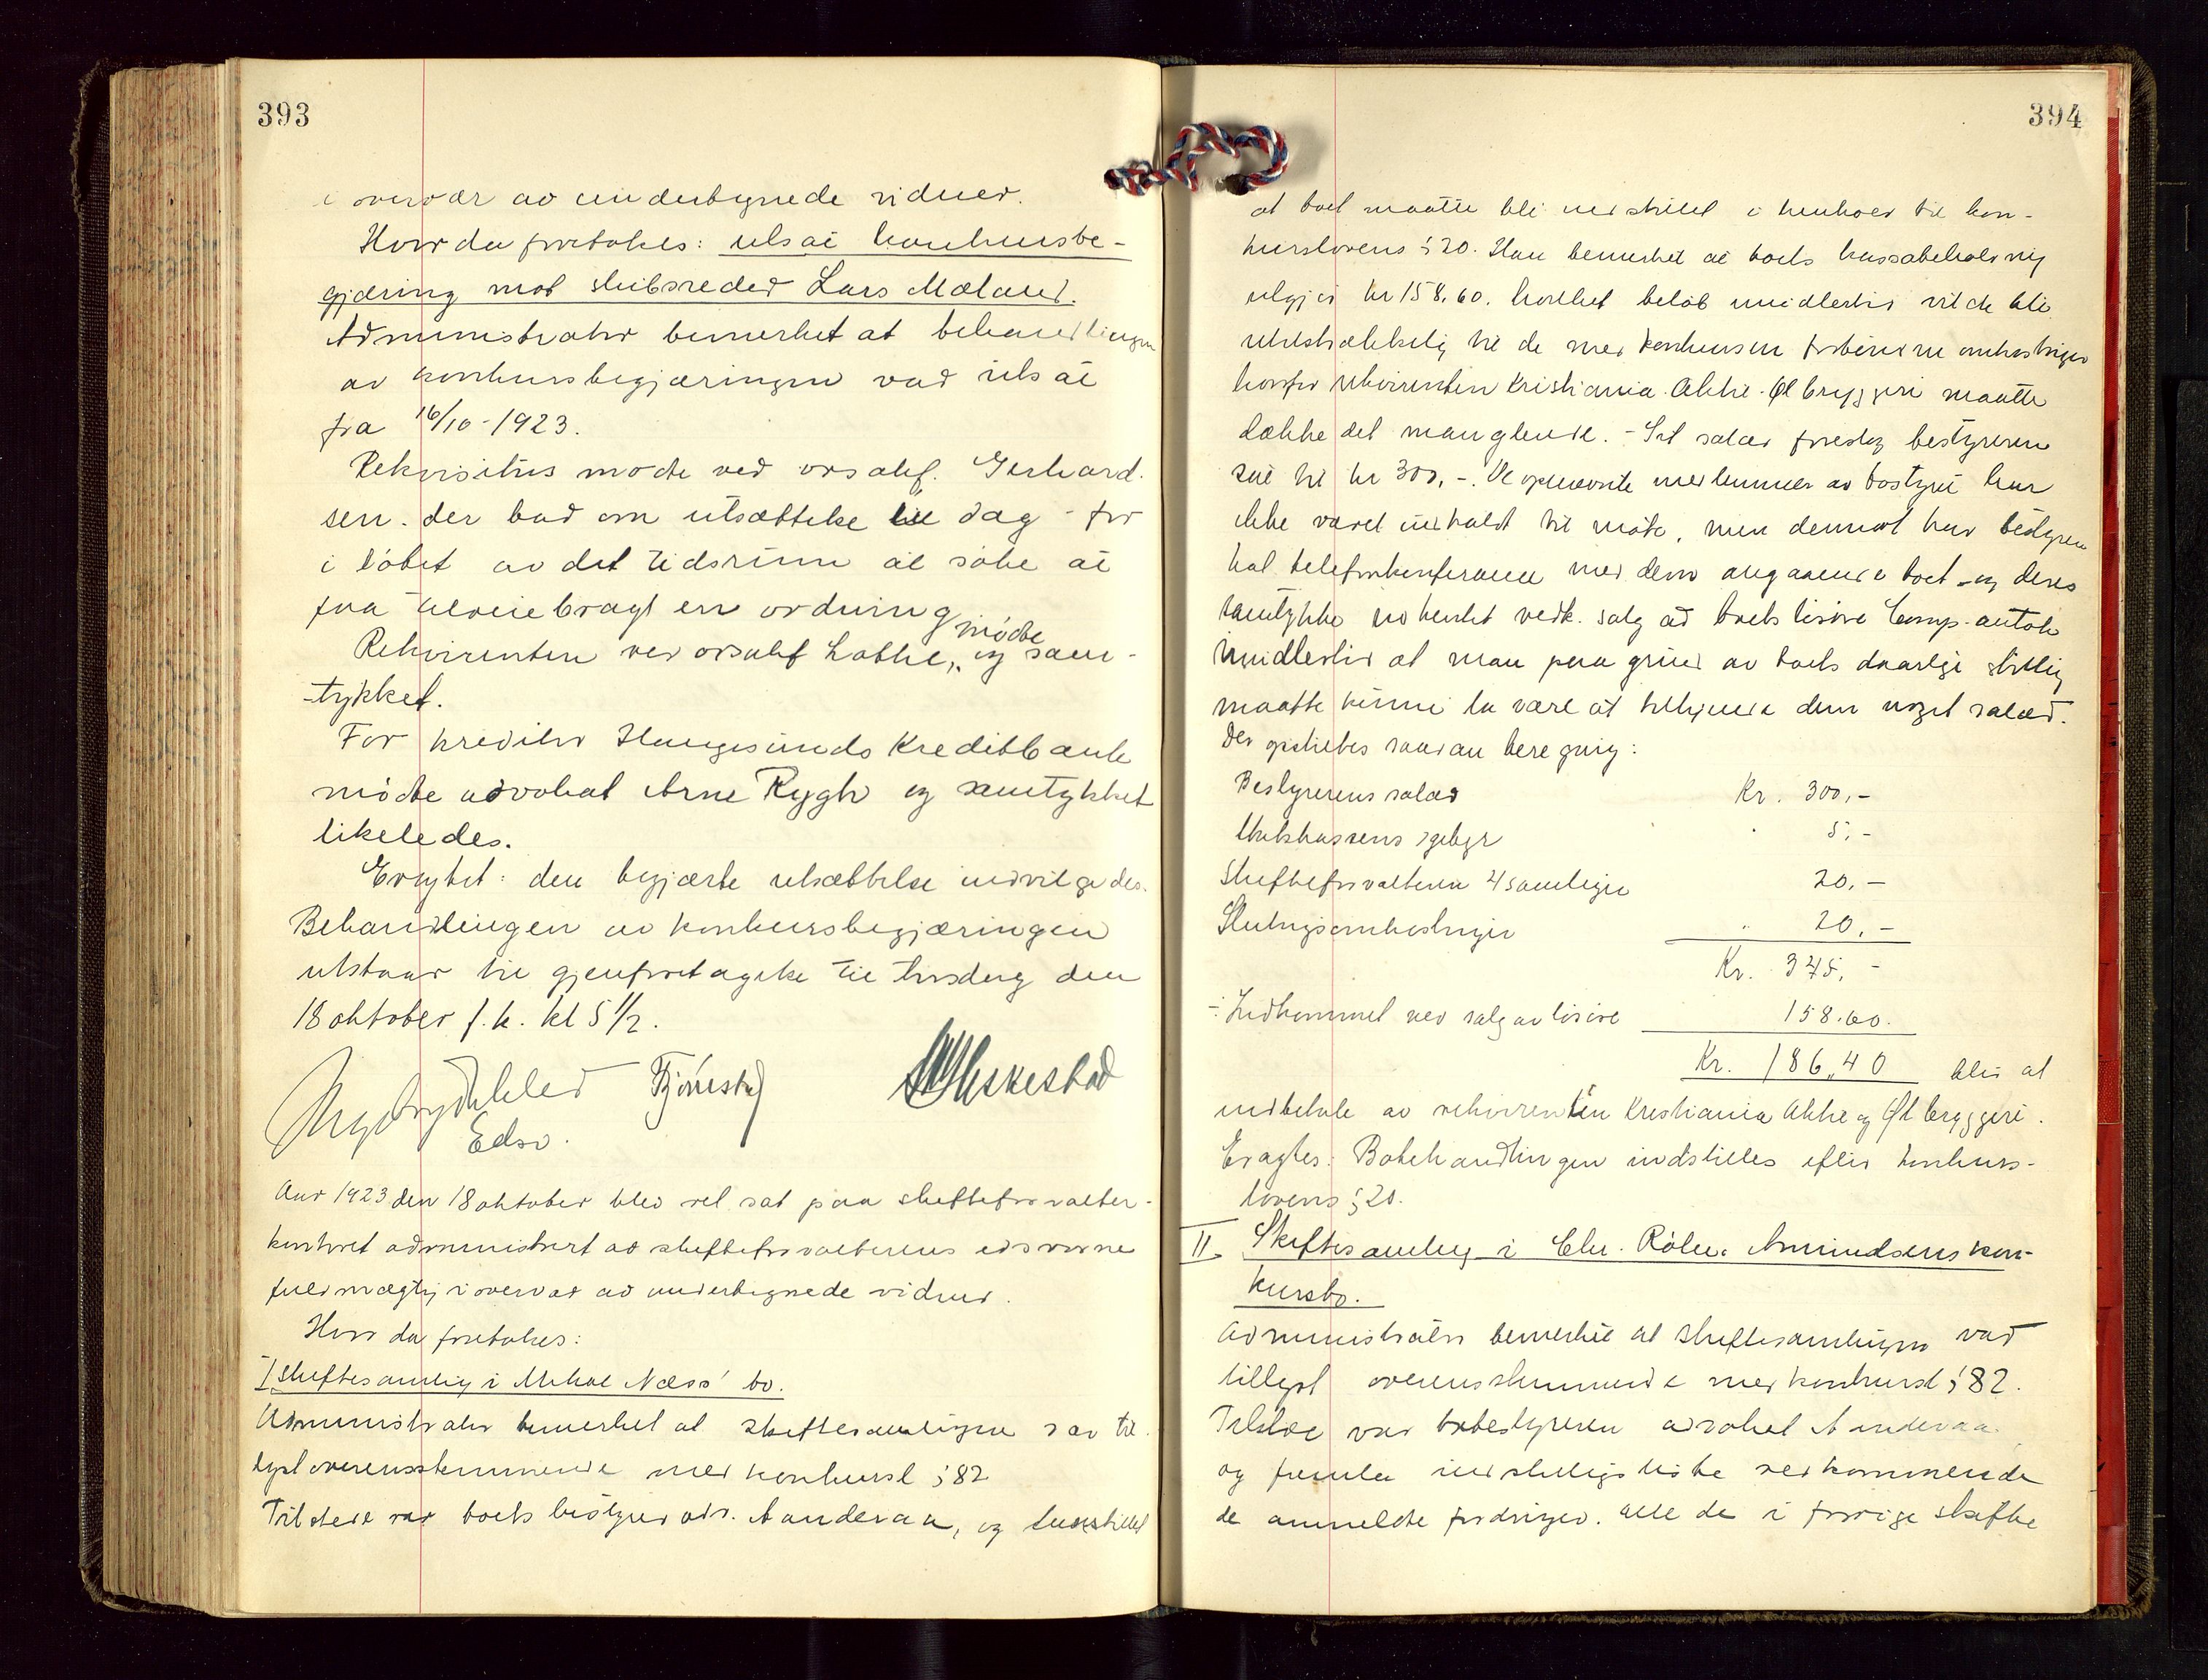 393
i overvær av undertegnede vidner.
Hvor da foretokes: utsat konkursbe-
gjæring mot skibsreder Lars Mæland.
Administrator bemerket at behandlingen
av konkursbegjæringen var utsat
fra 16/10-1923.
Rekvisitus møtte ved orsakf. Gerhard-
sen. der bad om utsættelse til dag for
i løbet av det tidsrum at søke at
faa tilveiebragt en ordning
Rekvirenten ved orsakf Lothe, møtte og sam-
tykket.
For kreditor Haugesunds Kreditbank
møtte advokat Arne Rygh og samtykket
likeledes.
Eragtet: den begjærte utsættelse indvilgedes.
Behandlingen av konkursbegjæringen
utstaar til gjenforetagelse til torsdag den
18 oktober f.k. kl 5 1/2.
Tjørestad
Edsv.
Aar 1923 den 18 oktober blev ret sat paa skifteforvalter-
kontoret administrert av skifteforvalterens edsvorne
fuldmægtig i overvær av undertegnede vidner.
Hvor da foretokes:
I Skiftesamling i Mikal Næss' bo.
Administrator bemerket at skiftesamlingen var til-
lyst overensstemmende med konkursl § 82
Tilstede var boets bestyrer adv. Aanderaa, og
394
at boet maatte bli indstillet i henhold til kon-
kurslovens § 20. Han bemerket at boets kassabeholdning
utgjør kr 158.60. hvilket beløb imidlertid vilde bli
utilstrækkelig til de med konkursen forbundne omkostninger
hvorfor rekvirenten Kristiania Aktie-Ølbryggeri maatte
dække det manglende. - Sit salær foreslog bestyreren
sat til kr 300,-. De opnævnte medlemmer av bostyret har
ikke været indkaldt til møte, men derimot har bestyreren
hat telefonkonferance med dem angaaende boet og deres
samtykke indhentet vedk. salg av boets løsøre
imidlertid at man paa grund av boets daarlige stilling
maatte kunne la være at tilkjende dem noget salær.
Der opstilledes saadan beregning:
Bestyrerens salær Kr. 300,-
gebyr 5,-
Skifteforvalteren 4 samlinger 20,-
Slutningsomkostninger 20,-
Kr. 345,-
÷ Indkommet ved salg av løsøre 158.60.
Kr. 186,40 blir at
indbetale av rekvirenten Kristiania Aktie og Ølbryggeri.
Eragtes: Bobehandlingen indstilles efter konkurs-
lovens § 20.
II. Skiftesamling i Chr. Amundsens kon-
kursbo.
Administrator bemerket at skiftesamlingen var
tillyst overensstemmende med konkursl § 82.
Tilstede var bobestyreren advokat Aanderaa
og fremla indstillingsliste vedkommende
de anmeldte fordringer. Alle de i forrige skifte